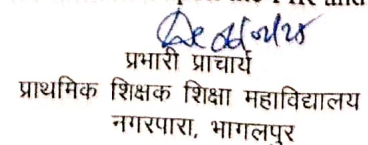 upon the
प्रभारी प्राचार्य
प्राथमिक शिक्षक शिक्षा महाविद्यालय
नगरपारा, भागलपुर